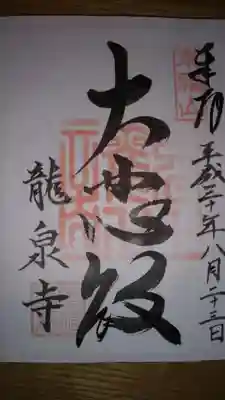 奉拝 平成三十年八月二十三日
大悲殿
龍泉寺